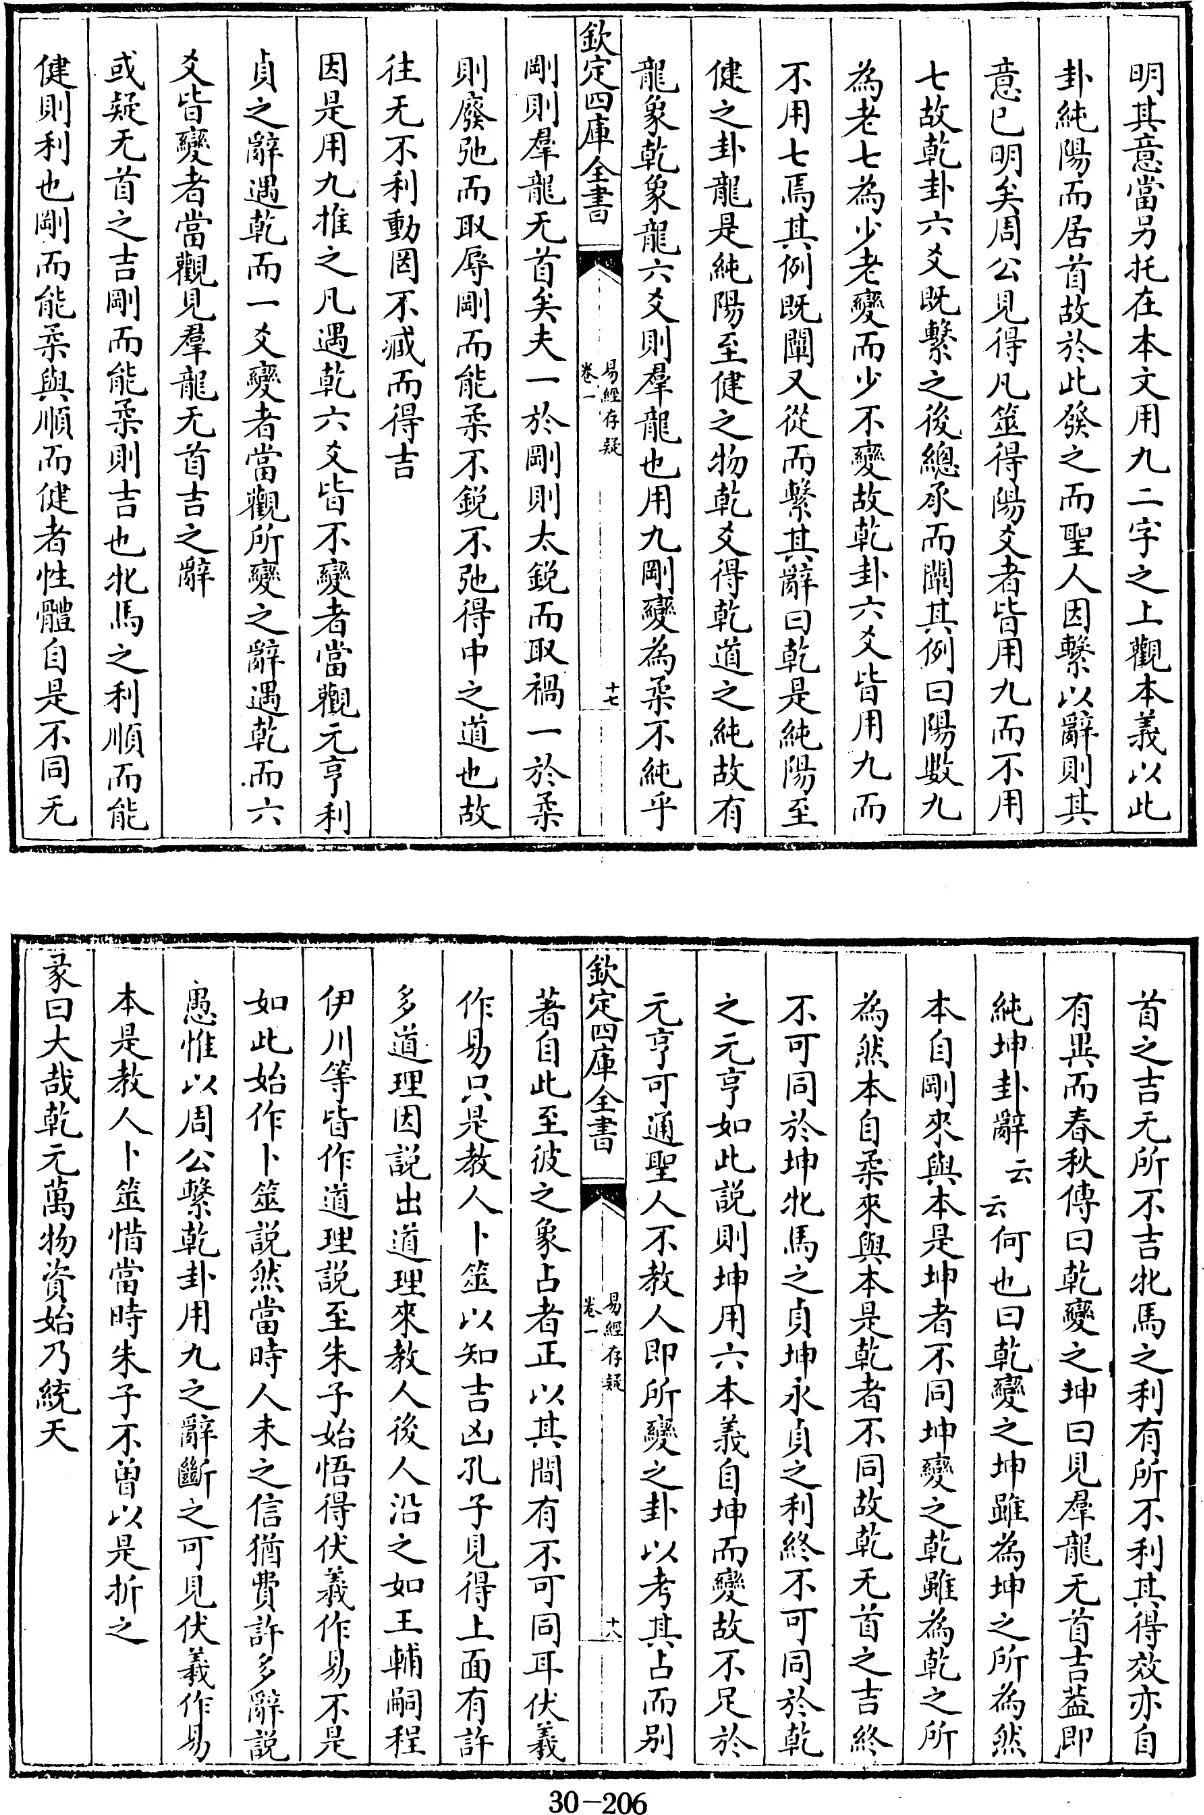 明其意當另托在本文用九二字之上觀本義以此
卦純陽而居首故於此發之而聖人因繫以辭則其
意已明矣周公見得凡筮得陽爻者皆用九而不用
七故乾卦六爻既繫之後總承而闡其例曰陽數九
為老七為少老變而少不變故乾卦六爻皆用九而
不用七焉其例既闡又從而繫其辭曰乾是純陽至
健之卦龍是純陽至健之物乾爻得乾道之純故有
龍象乾象龍六爻則羣龍也用九剛變為柔不純乎
欽定四庫全書
易經存疑
卷一
十七
剛則羣龍无首矣夫一於剛則太銳而取禍一於柔
則廢弛而取辱剛而能柔不銳不弛得中之道也故
往无不利動罔不臧而得吉
因是用九推之凡遇乾六爻皆不變者當觀元亨利
貞之辭遇乾而一爻變者當觀所變之辭遇乾而六
爻皆變者當觀見羣龍无首吉之辭
或疑无首之吉剛而能柔則吉也牝馬之利順而能
健則利也剛而能柔與順而健者性體自是不同无
首之吉无所不吉牝馬之利有所不利其得效亦自
有異而春秋傳曰乾變之坤曰見羣龍无首吉葢即
純坤卦辭云云何也曰乾變之坤雖為坤之所為然
本自剛來與本是坤者不同坤變之乾雖為乾之所
為然本自柔來與本是乾者不同故乾无首之吉終
不可同於坤牝馬之貞坤永貞之利終不可同於乾
之元亨如此說則坤用六本義自坤而變故不足於
元亨可通聖人不教人即所變之卦以考其占而別
欽定四庫全書
易經存疑
卷一
十八
著自此至彼之象占者正以其間有不可同耳伏羲
作易只是教人卜筮以知吉凶孔子見得上面有許
多道理因說出道理來教人後人沿之如王輔嗣程
伊川等皆作道理說至朱子始悟得伏羲作易不是
如此始作卜筮說然當時人未之信猶費許多辭說
愚惟以周公繫乾卦用九之辭斷之可見伏羲作易
本是教人卜筮惜當時朱子不曾以是折之
彖曰大哉乾元萬物資始乃統天
30-206